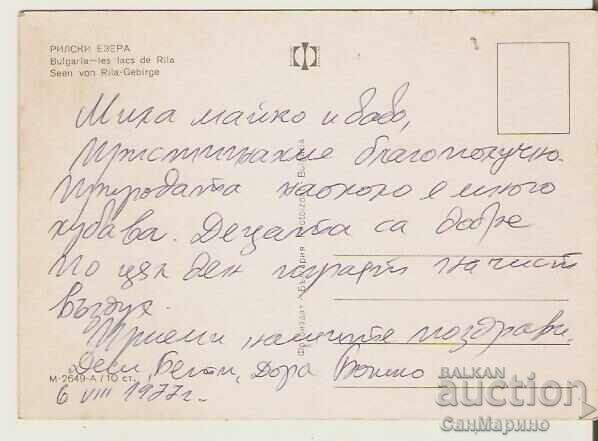 РИЛСКИ ЕЗЕРА
Bulgaria—les lacs de Rila
Seen von Rila-Gebirge
Мила майко и бабо,
Пристигнахме благополучно.
Природата наоколо е много
хубава. Децата са добре
по цял ден играят на чист
въздух.
Приеми нашите поздрави.
Деси, Бети, Дора Бошко
6 VIII 1977 г.
М-2649-А / 10 ст.
Фотоиздат • България Photoizdat • Bulgaria
BALKAN
auction
СанМарино